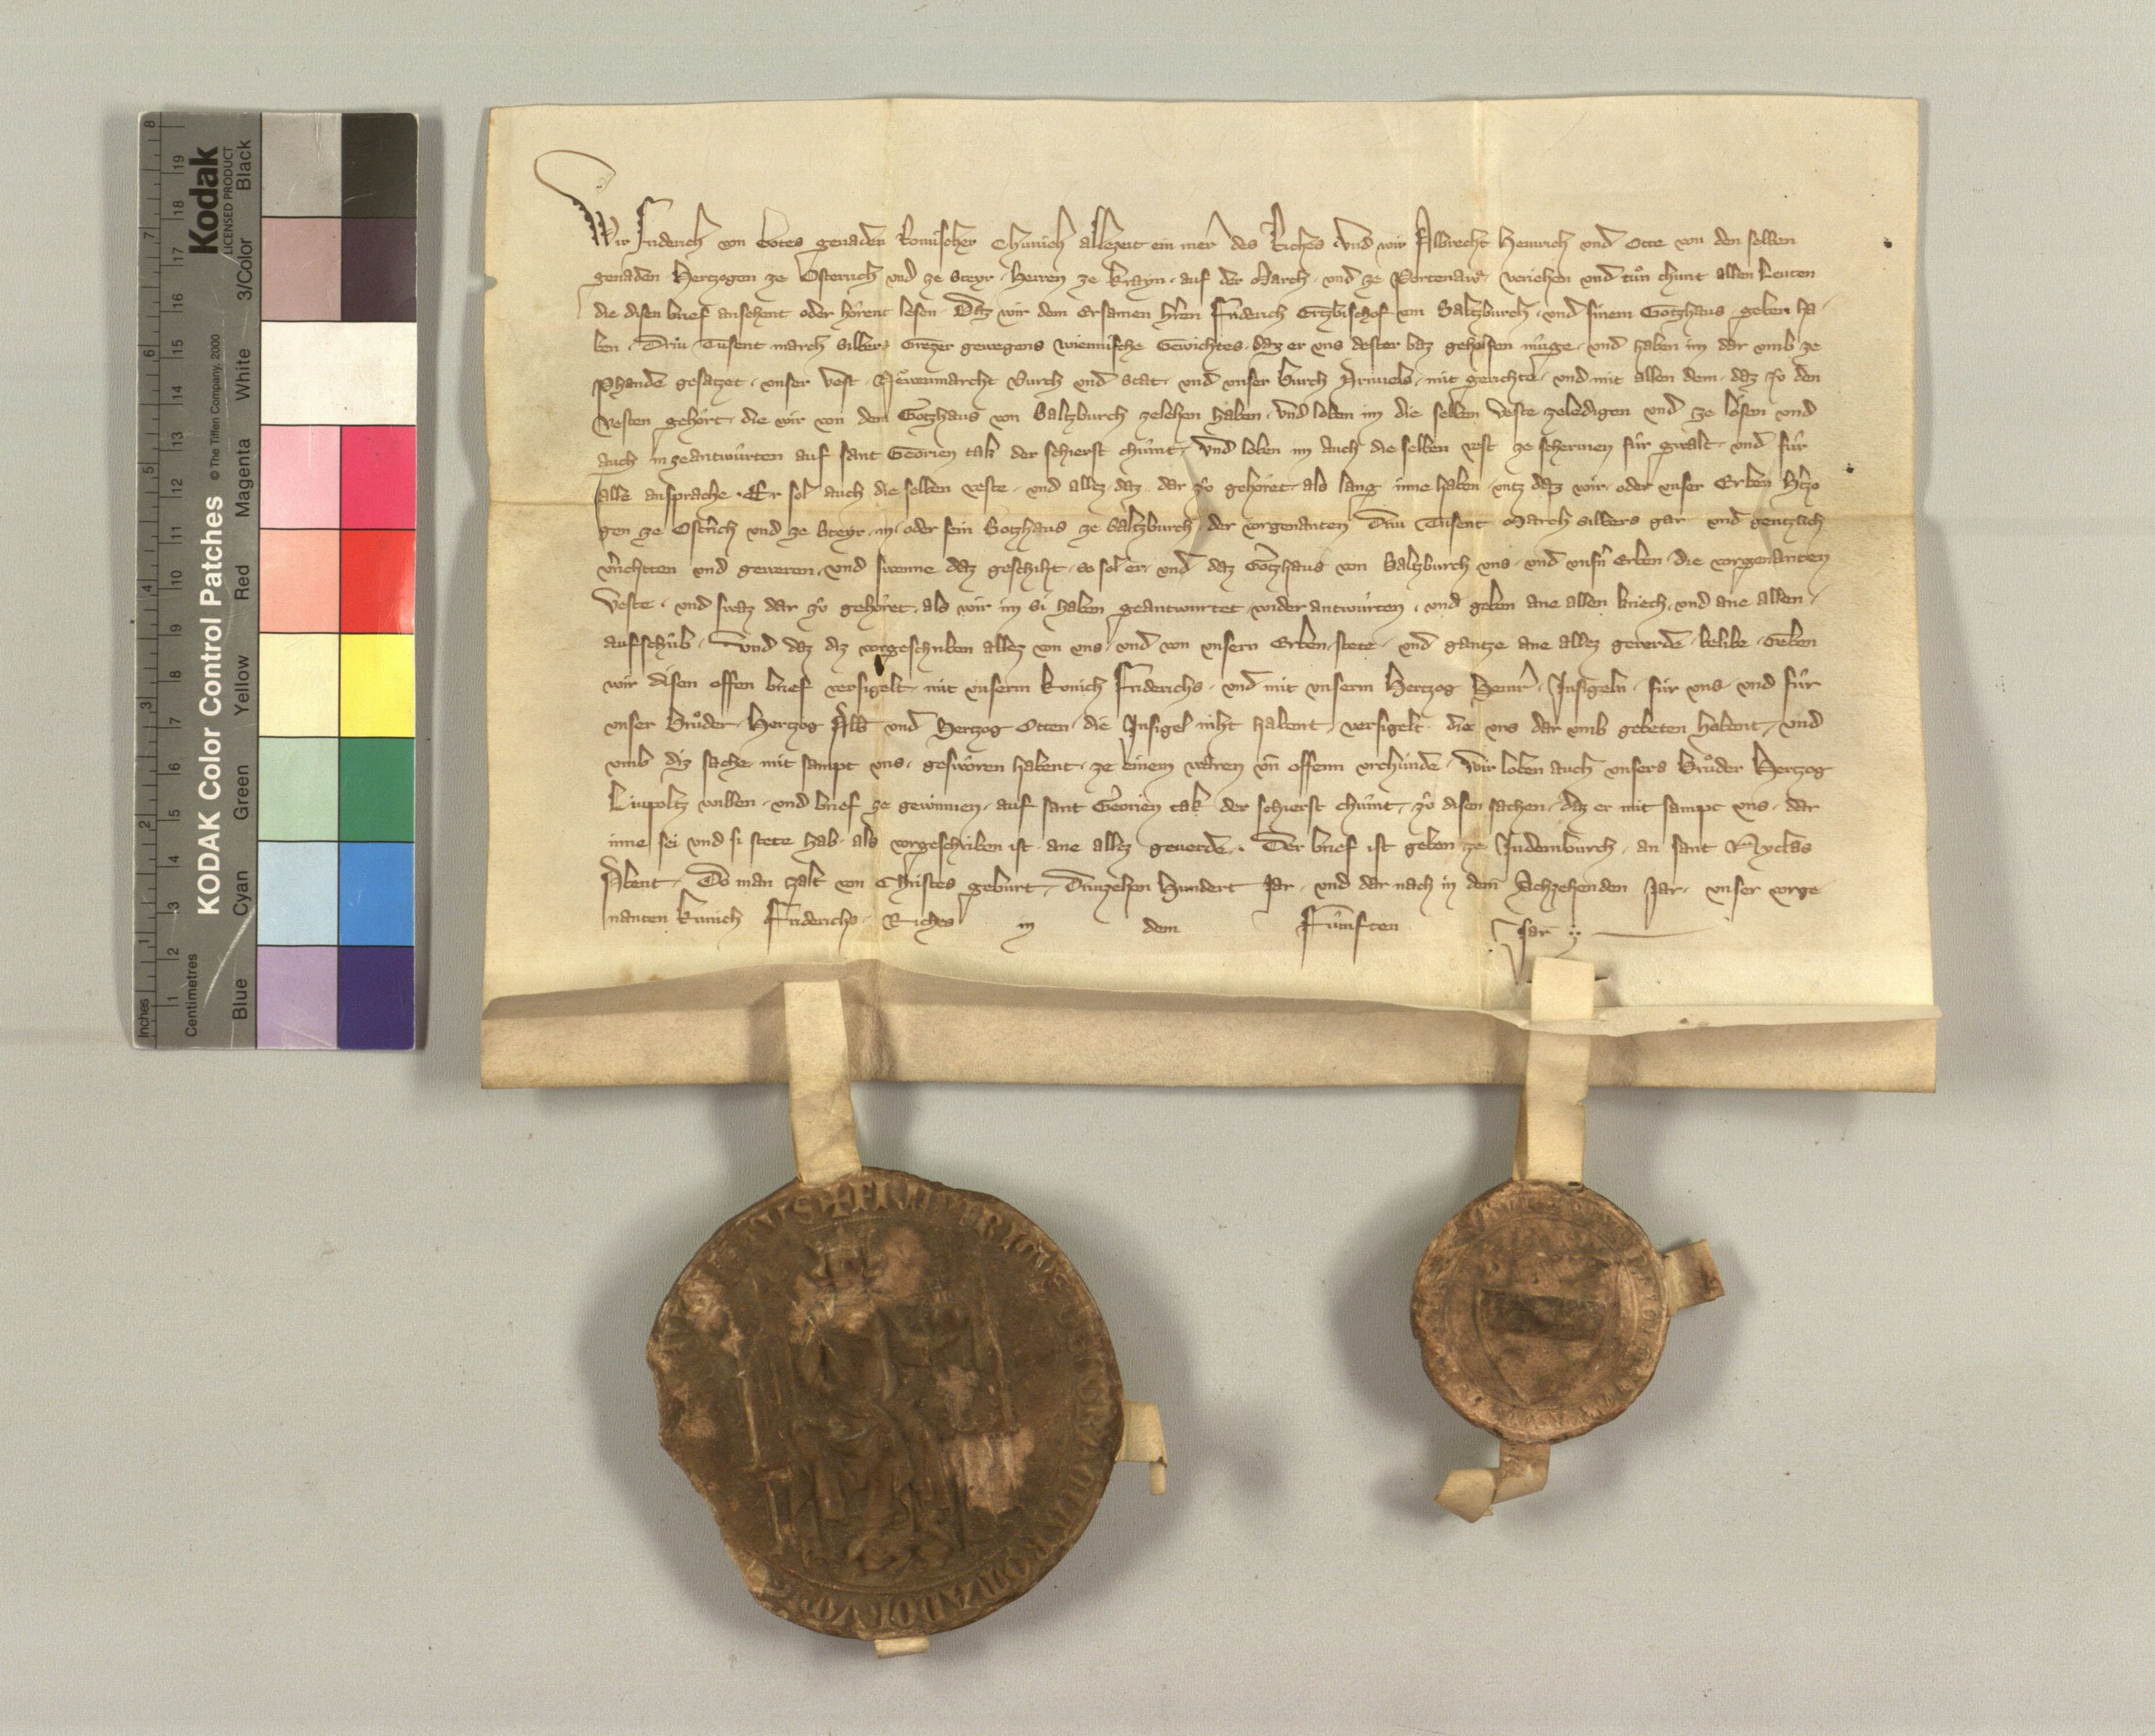 Wir Friderich von Gotes genaden Romischer Chunich allezeit ein merer des Riches vnd wir Albrecht Heinrich vnd Otte von den selben
genaden Hertzogen ze Osterrich vnd ze Steyr Herren ze Krayn auf der March vnd ze Portenaw veriehen vnd tůn chunt allen Leuten
die disen brief ansehent oder hörent lesen Daz wir dem Ersamen hren Friderich Ertzbischof von Saltzburch vnd sinem Gotzhaus geben ha
ben Driu Tusent march silbers Grezer gewegens wiennische Gewichtes daz er vns dester baz geholfen müge vnd haben im dar vmb ze
Phande gesatzet vnser Vest Newenmarcht Burch vnd Stat vnd vnser Burch mit gerichte vnd mit allen dem daz zu den
Vesten gehört die wir von dem Gotzhaus von Saltzburch zelehen haben vnd loben im die selben Veste zeledigen vnd ze lösen vnd
auch in zeantwürten auf sant Georien tak der schierst chümt vnd loben im auch die selben vest ze schermen für gwalt vnd für
alle ansprache Er sol auch die selben veste vnd allez daz dar zů gehöret als lang inne haben vntz daz wir oder vnser Erben Htzo
gen ze Ostrich vnd ze Steyr in oder sein Gotzhaus ze Saltzburch der vorgenanten Driu Tusent March silbers gar vnd gentzlich
vrichtten vnd geweren vnd swenne daz geschiht so sol er vnd daz Gotzhaus von Saltzburch vns vnd vnsn Erben die vorgenanten
Veste vnd swaz dar zů gehöret als wir im si haben geantwurtet wider antwürten vnd geben ane allen kriech vnd ane allen
aufschüb Vnd daz diz vorgeschriben allez von vns vnd von vnsern Erben stete vnd gantze ane allez geuerde belibe Geben
wir disen offen brief versigelt mit vnserm kunich Friderichs vnd mit vnserm Hertzog Heinr Insigeln für vns vnd für
vnser Brůder Hertzog Alb vnd Hertzog Otten die Insigel niht habent versigelt die vns dar vmb gebeten habent vnd
vmb diz sache mit sampt vns gesworen habent ze einem waren vn offenn vrchünde Wir loben auch vnsers Brůder Hertzog
Liupoltz willen vnd brief ze gewinnen auf sant Georien tak der schierst chümt zů disen sachen daz er mit sampt vns dar
inne sei vnd si stete hab als vorgeschriben ist ane allez geuerde Der brief ist geben ze Judemburch an sant Nyclas
Abent Do man zalt von Christes geburt Driuzehen Hundert Jar vnd dar nach in dem Achzehenden Jar vnser vorge
nanten kunich Friderichs Riches in dem Fümften Jar
KODAK Color Control Patches © The Tiffen Company, 2000
Kodak
LICENSED PRODUCT
Blue Cyan Green Yellow Red Magenta White 3/Color Black
Inches 1 2 3 4 5 6 7 8
Centimetres 1 2 3 4 5 6 7 8 9 10 11 12 13 14 15 16 17 18 19